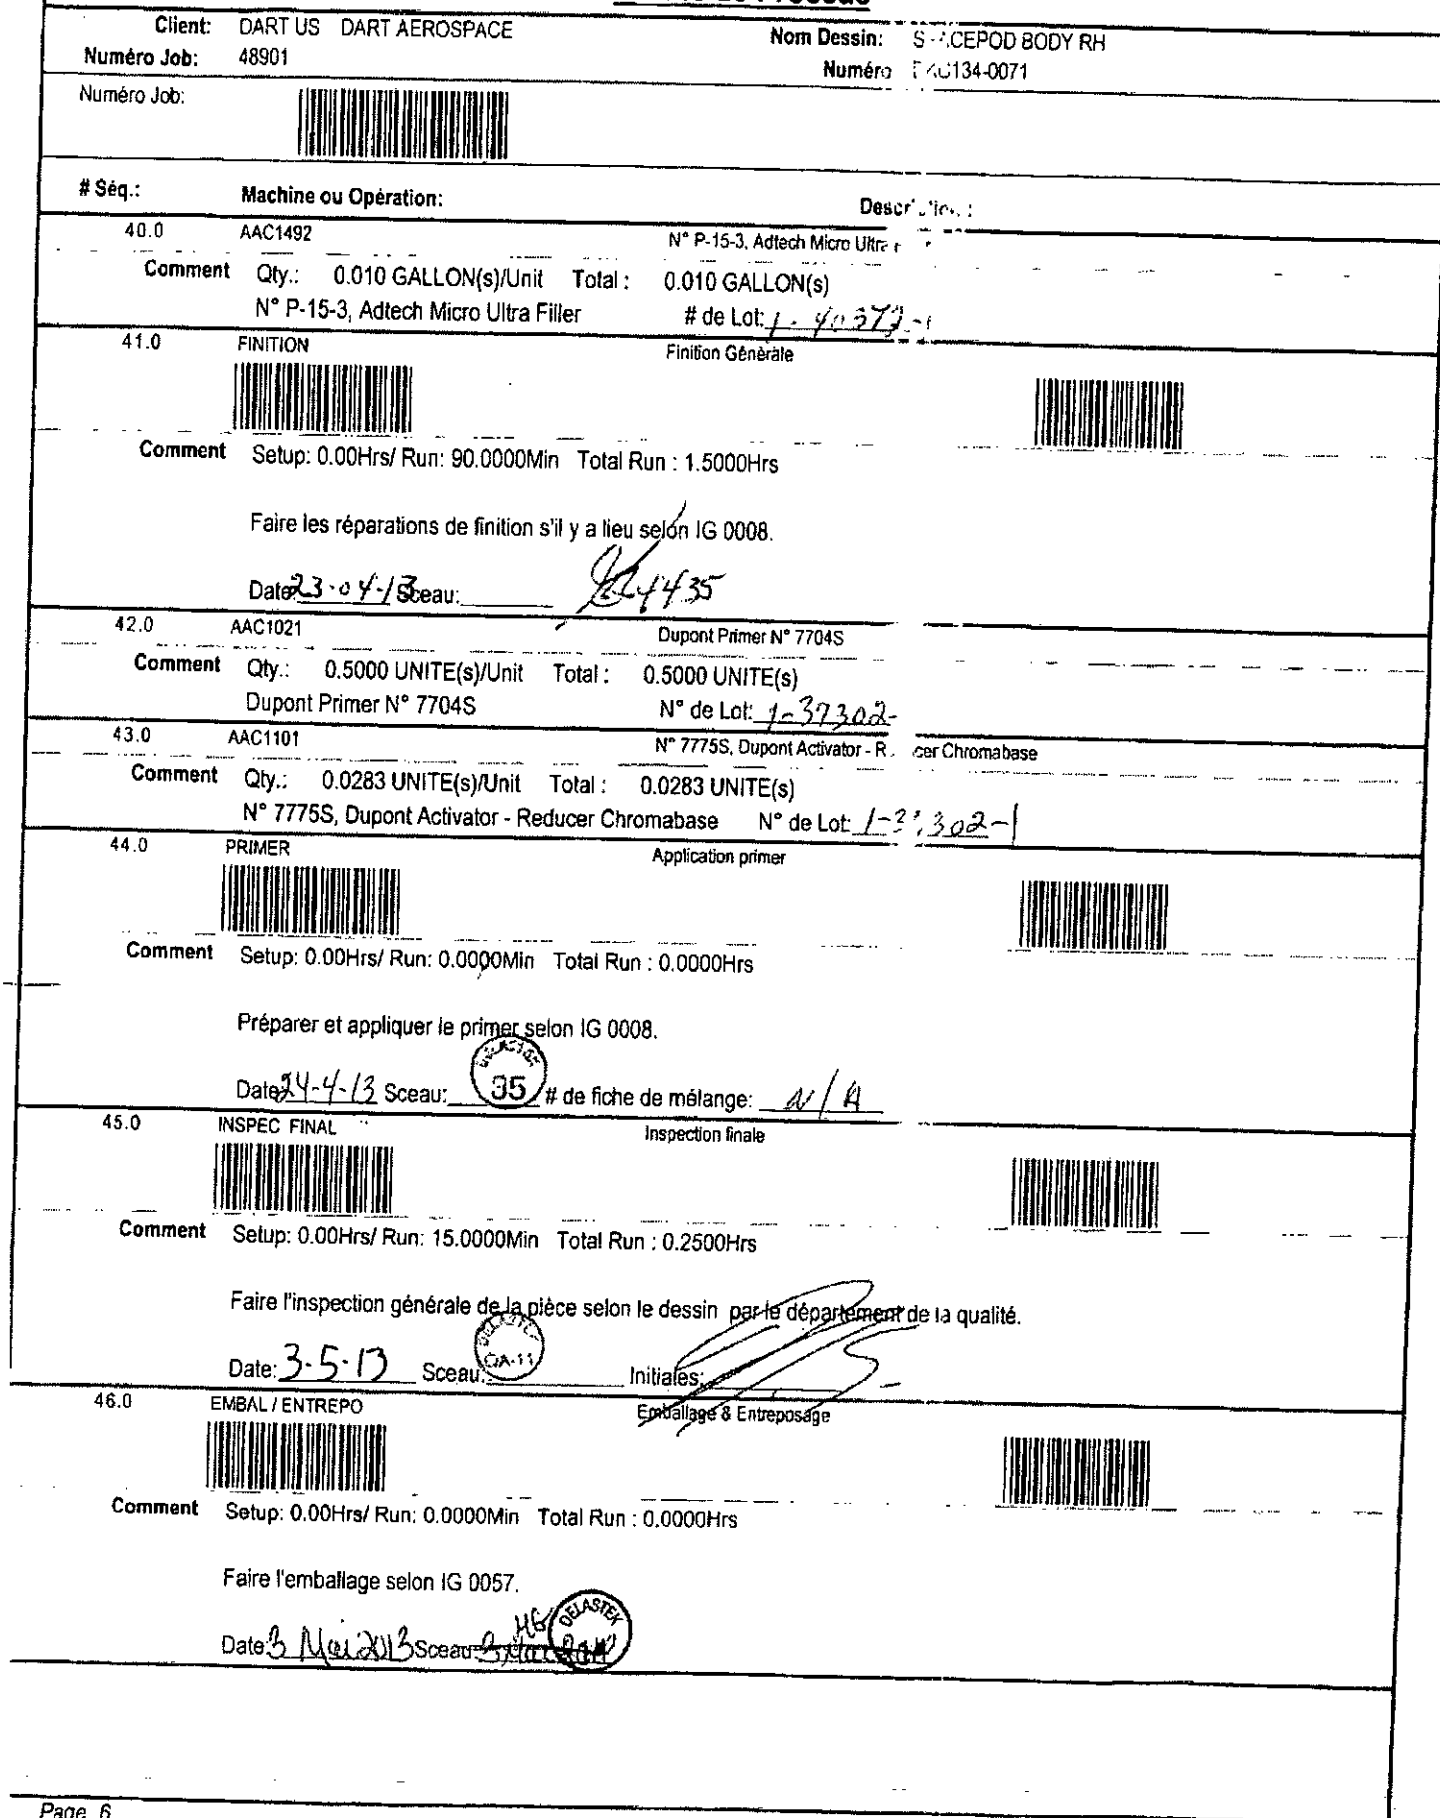 Client: DART US DART AEROSPACE
Nom Dessin: BODY RH
Numéro Job: 48901
Numéro 134-0071
Numéro Job:
# Séq.: Machine ou Opération:
40.0 AAC1492 N° P-15-3, Adtech Micro Ultra
Comment Qty.: 0.010 GALLON(s)/Unit Total : 0.010 GALLON(s)
N° P-15-3, Adtech Micro Ultra Filler # de Lot:
41.0 FINITION Finition Générale
Comment Setup: 0.00Hrs/ Run: 90.0000Min Total Run : 1.5000Hrs
Faire les réparations de finition s'il y a lieu selon IG 0008.
Date: 23-04-13 Sceau:
42.0 AAC1021 Dupont Primer N° 7704S
Comment Qty.: 0.5000 UNITE(s)/Unit Total : 0.5000 UNITE(s)
Dupont Primer N° 7704S N° de Lot: 1-37302-
43.0 AAC1101 N° 7775S, Dupont Activator - Chromabase
Comment Qty.: 0.0283 UNITE(s)/Unit Total : 0.0283 UNITE(s)
N° 7775S, Dupont Activator - Reducer Chromabase N° de Lot:
44.0 PRIMER Application primer
Comment Setup: 0.00Hrs/ Run: 0.0000Min Total Run : 0.0000Hrs
Préparer et appliquer le primer selon IG 0008.
Date: 24-4-13 Sceau: 35 # de fiche de mélange: N/A
45.0 INSPEC FINAL Inspection finale
Comment Setup: 0.00Hrs/ Run: 15.0000Min Total Run : 0.2500Hrs
Faire l'inspection générale de la pièce selon le dessin par le département de la qualité.
Date: 3-5-13 Sceau: QA-11 Initiales:
46.0 EMBAL / ENTREPO Emballage & Entreposage
Comment Setup: 0.00Hrs/ Run: 0.0000Min Total Run : 0.0000Hrs
Faire l'emballage selon IG 0057.
Date: 3 Mai 2013 Sceau: DELASTEK
Page 6